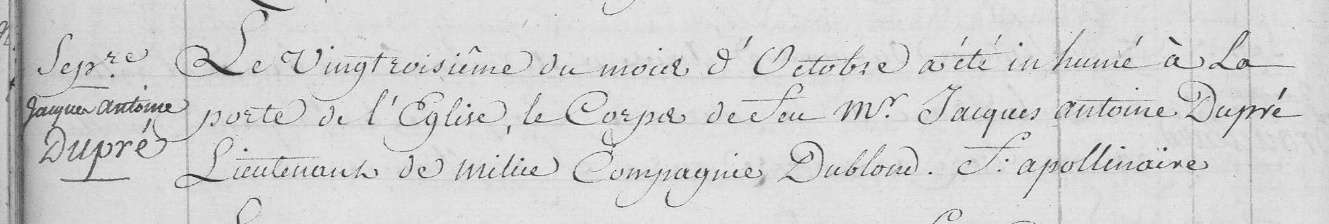 Sep.re
Jacques antoine
Dupré
Le Vingtroisiême du mois d'Octobre a été inhumé à La
porte de l'Eglise, le Corps de feu Mr. Jacques antoine Dupré
Lieutenant de milice Compagnie Dublond. f: apollinaire